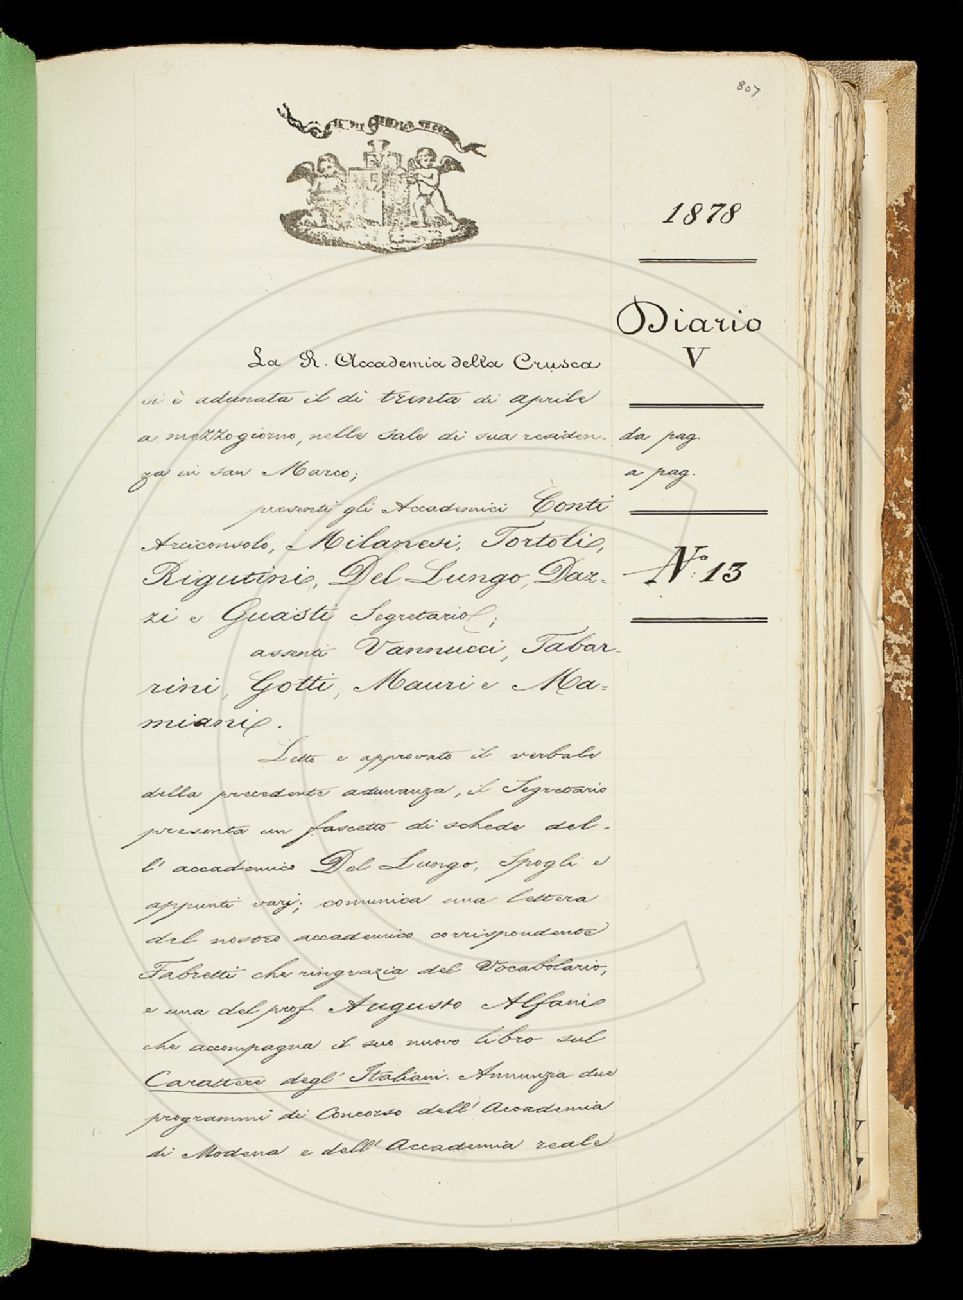 807
1878
Diario
V
da pag.
a pag.
N.° 13
La R. Accademia della Crusca
si è adunata il dì trenta di aprile
a mezzogiorno, nelle sale di sua residen-
za in san Marco;
presenti gli Accademici Conti
Arciconsolo, Milanesi, Tortoli,
Rigutini, Del Lungo, Daz-
zi e Guasti Segretario;
assenti Vannucci, Tabar-
rini, Gotti, Mauri e Ma-
miani.
Letto e approvato il verbale
della precedente adunanza, il Segretario
presenta un fascetto di schede del-
l'accademico Del Lungo, spogli e
appunti varj; comunica una lettera
del nostro accademico corrispondente
Fabretti che ringrazia del Vocabolario,
e una del prof. Augusto Alfani
che accompagna il suo nuovo libro sul
Carattere degl'Italiani. Annunzia due
programmi di Concorso dell'Accademia
di Modena e dell'Accademia reale